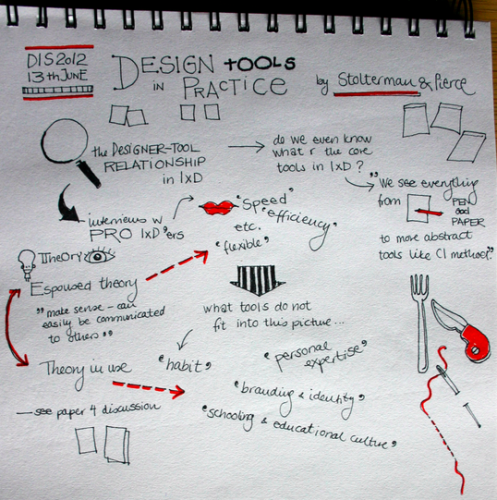 DIS2012
13th JUNE
DESIGN TOOLS
IN PRACTICE
by Stolterman & Pierce
the DESIGNER-TOOL
RELATIONSHIP
in IxD
do we even know
what r the core
tools in IxD?
"We see everything
from PEN and PAPER
to move abstract
tools like CI method"
interviews w
PRO IxD'ers
"Speed"
"efficiency"
etc.
"flexible"
THEORY
Espoused theory
"make sense - can
easily be communicated
to others"
what tools do not
fit into this picture...
Theory in use
"habit"
"personal
expertise"
"branding & identity"
"schooling & educational culture"
— see paper 4 discussion